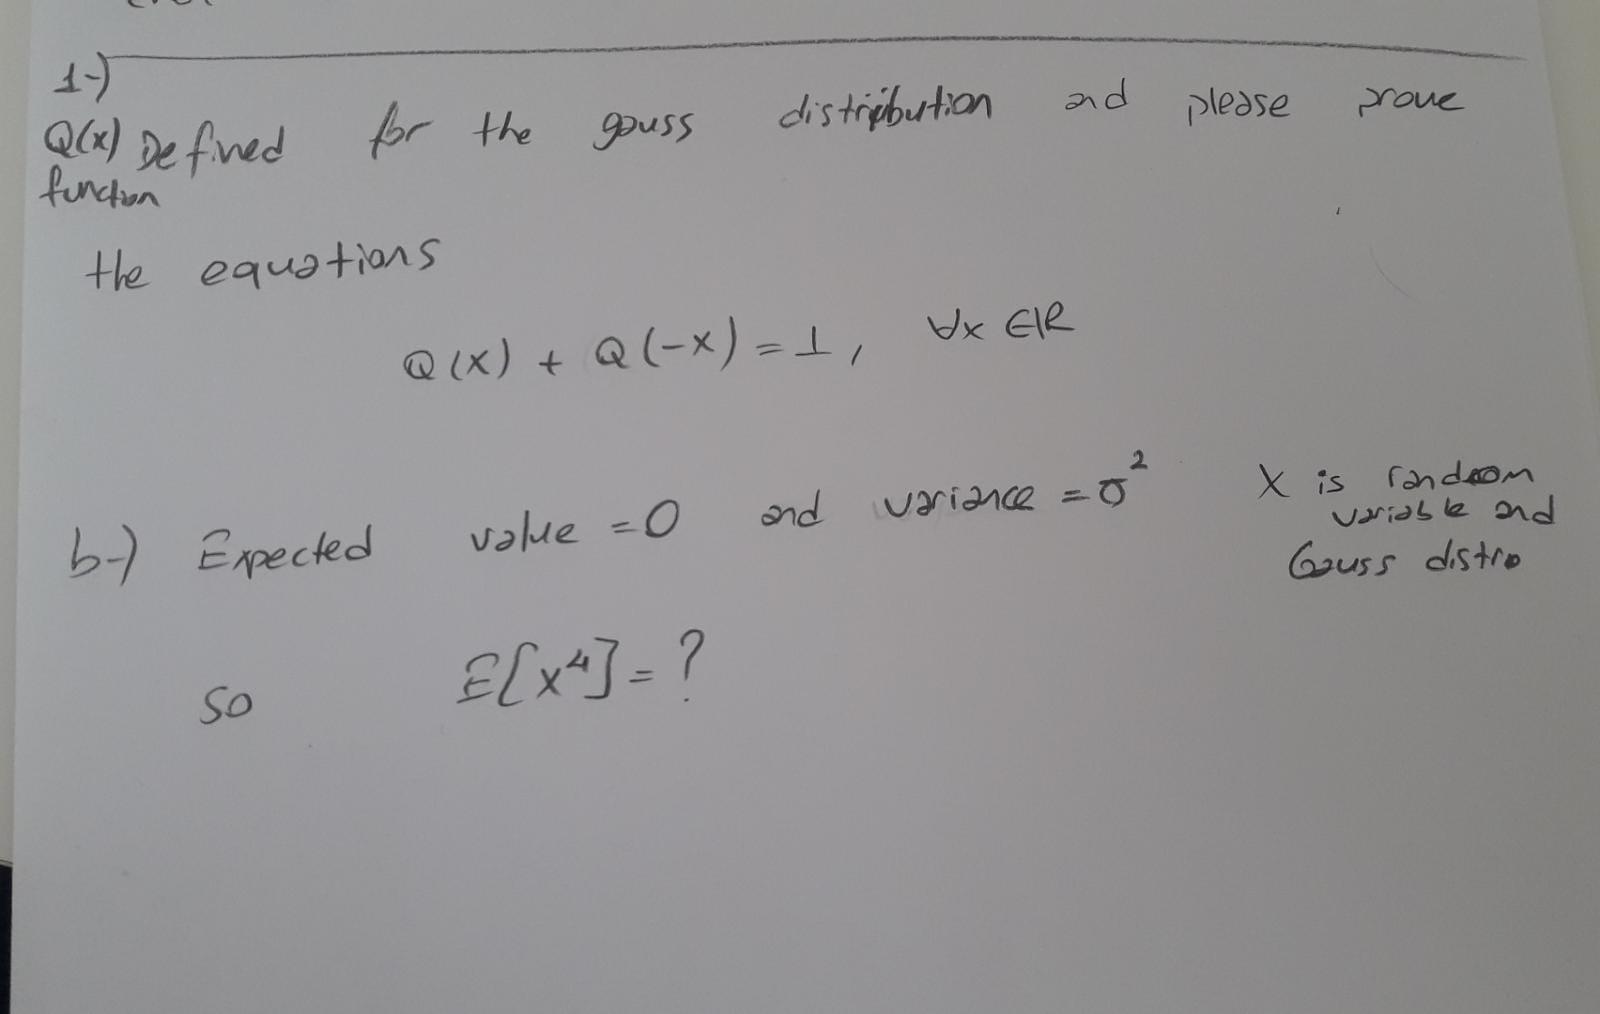 1-)
Q(x) Defined for the gauss distribution and please prove
function
the equations
Q(x) + Q(-x) = 1, ∀x ∈ ℝ
b-) Expected value = 0 and variance = σ² X is random
variable and
Gauss distro
so E[x⁴] = ?